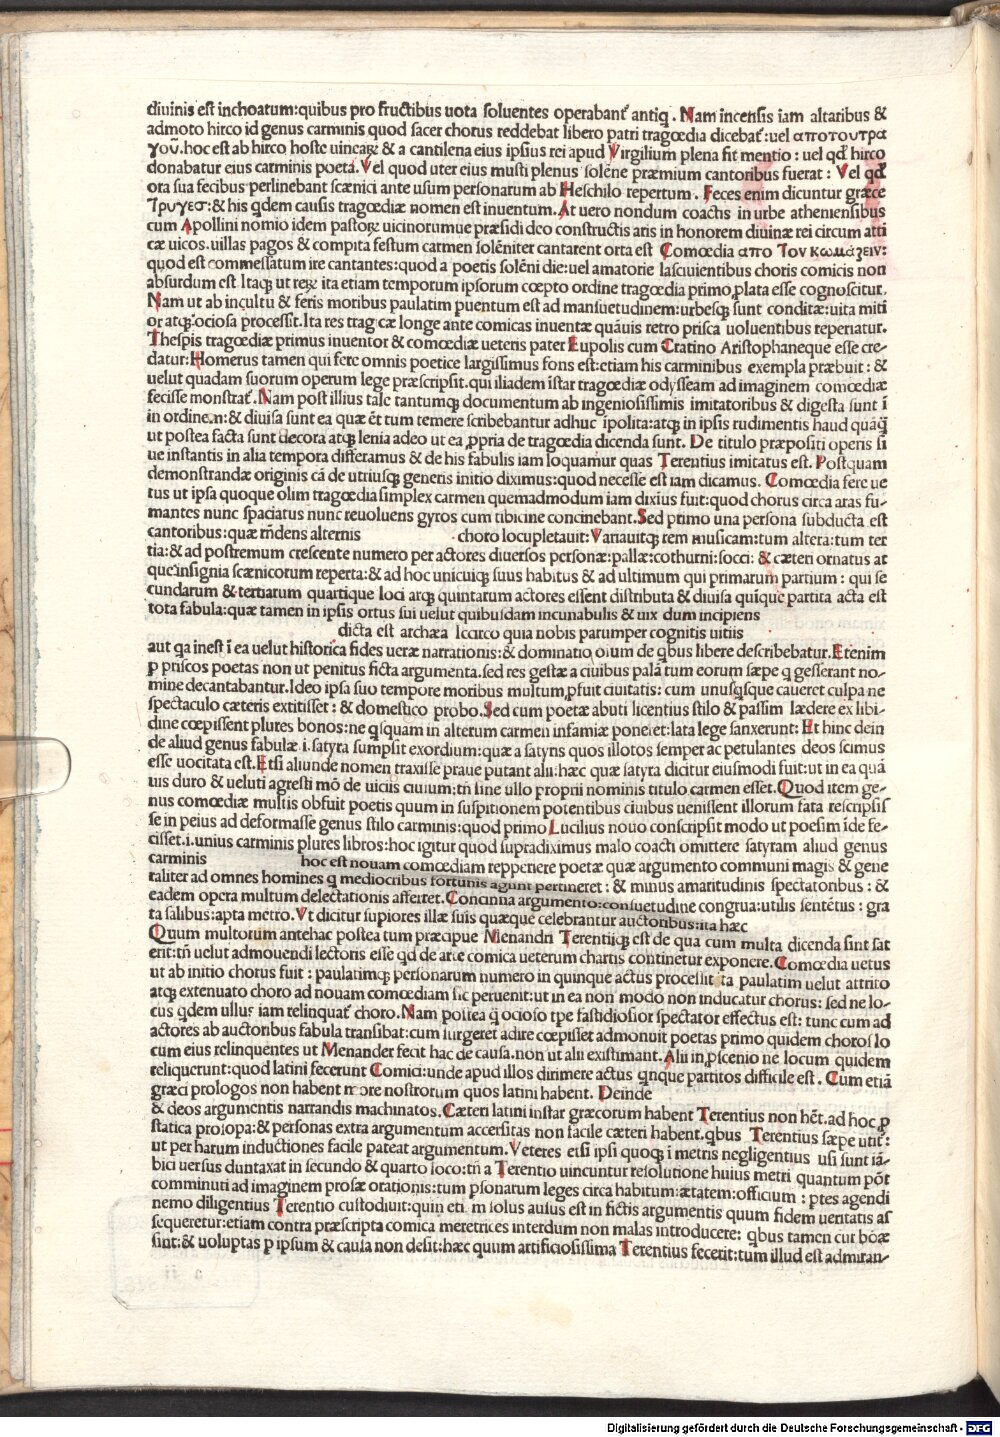 diuinis est inchoatum:quibus pro fructibus uota soluentes operabant᷑ antiq. Nam incensis iam altaribus &
admoto hirco id genus carminis quod sacer chorus reddebat libero patri tragœdia dicebat᷑:uel αποτουτρα
γου̃.hoc est ab hirco hoste uinearꝝ & a cantilena eius ipsius rei apud Virgilium plena fit mentio : uel qđ hirco
donabatur eius carminis poeta.Vel quod uter eius musti plenus solēne præmium cantoribus fuerat : Vel qđ
ora sua fecibus perlinebant scænici ante usum personarum ab Heschilo repertum . Feces enim dicuntur græce
Τρυγεσ:& his qdem causis tragœdiæ nomen est inuentum.At uero nondum coactis in urbe atheniensibus
cum Apollini nomio idem pastorꝝ uicinorumue præsidi deo constructis aris in honorem diuinæ rei circum atti
cæ uicos.uillas pagos & compita festum carmen solēniter cantarent orta est Comœdia απο Του κωμαζειν:
quod est commessatum ire cantantes:quod a poetis solēni die:uel amatorie lasciuientibus choris comicis non
absurdum est.Itaqꝫ ut rerꝝ ita etiam temporum ipsorum cœpto ordine tragœdia primo ꝓlata esse cognoscitur.
Nam ut ab incultu & feris moribus paulatim puentum est ad mansuetudinem:urbesqꝫ sunt conditæ:uita miti
or atqꝫ ociosa processit.Ita res tragicæ longe ante comicas inuentæ quāuis retro prisca uoluentibus reperiatur.
Thespis tragœdiæ primus inuentor & comœdiæ ueteris pater Eupolis cum Cratino Aristophaneque esse cre-
datur:Homerus tamen qui fere omnis poetice largissimus fons est:etiam his carminibus exempla præbuit : &
uelut quadam suorum operum lege præscripsit.qui iliadem īstar tragœdiæ odysseam ad imaginem comœdiæ
fecisse monstrat᷑.Nam post illius tale tantumqꝫ documentum ab ingeniosissimis imitatoribus & digesta sunt ī
in ordinem:& diuisa sunt ea quæ ēt tum temere scribebantur adhuc īpolita:atqꝫ in ipsis rudimentis haud quāq̃
ut postea facta sunt decora atqꝫ lenia adeo ut ea ꝓpria de tragœdia dicenda sunt. De titulo præpositi operis si
ue instantis in alia tempora differamus & de his fabulis iam loquamur quas Terentius imitatus est. Postquam
demonstrandæ originis cā de utriusqꝫ generis initio diximus:quod necesse est iam dicamus. Comœdia fere ue
tus ut ipsa quoque olim tragœdia simplex carmen quemadmodum iam dixius fuit:quod chorus circa aras fu-
mantes nunc spaciatus nunc reuoluens gyros cum tibicine concinebant.Sed primo una persona subducta est
cantoribus:quæ rñdens alternis choro locupletauit:Variauitqꝫ rem musicam:tum altera:tum ter
tia:& ad postremum crescente numero per actores diuersos personæ:pallæ:cothurni:socci: & cæteri ornatus at
que insignia scænicorum reperta:& ad hoc unicuiqꝫ suus habitus & ad ultimum qui primarum partium : qui se
cundarum & tertiarum quartique loci atqꝫ quintarum actores essent distributa & diuisa quiq̃ue partita acta est
tota fabula:quæ tamen in ipsis ortus sui uelut quibusdam incunabulis & uix dum incipiens
dicta est archæa Icarco quia nobis parumper cognitis uitiis
aut qa inest ī ea uelut historica fides ueræ narrationis:& dominatio oium de qbus libere describebatur.Etenim
p priscos poetas non ut penitus ficta argumenta.sed res gestæ a ciuibus palā tum eorum sæpe q gesserant no-
mine decantabantur.Ideo ipsa suo tempore moribus multum ꝓfuit ciuitatis: cum unusqsque caueret culpa ne
spectaculo cæteris extitisset : & domestico probo.Sed cum poetæ abuti licentius stilo & passim lædere ex libi-
dine cœpissent plures bonos:ne qsquam in alterum carmen infamiæ poneret:lata lege sanxerunt: Et hinc dein
de aliud genus fabulæ .i.satyra sumpsit exordium:quæ a satyris quos illotos semper ac petulantes deos scimus
esse uocitata est.Etsi aliunde nomen traxisse praue putant alii:hæc quæ satyra dicitur eiusmodi fuit:ut in ea quā
uis duro & ueluti agresti mō de uiciis ciuium:tñ sine ullo proprii nominis titulo carmen esset.Quod item ge-
nus comœdiæ multis obfuit poetis quum in suspitionem potentibus ciuibus uenissent illorum fata rescripsis
se in peius ad deformasse genus stilo carminis:quod primo Lucilius nouo conscripsit modo ut poesim īde fe-
cisset.i.unius carminis plures libros:hoc igitur quod supradiximus malo coacti omittere satyram aliud genus
carminis hoc est nouam comœdiam repperiere poetæ quæ argumento communi magis & gene
raliter ad omnes homines q mediocribus fortunis agunt pertineret : & minus amaritudinis spectatoribus : &
eadem opera multum delectationis afferret.Concinna argumento:consuetudine congrua:utilis sentētiis : gra
ta salibus:apta metro.Vt dicitur supiores illæ suis quæque celebrantur auctoribus:ita hæc
Quum multorum antehac postea tum præcipue Menandri Terentiiqꝫ est de qua cum multa dicenda sint sat
erit:tñ uelut admouendi lectoris esse qđ de arte comica ueterum chartis continetur exponere.Comœdia uetus
ut ab initio chorus fuit : paulatimqꝫ personarum numero in quinque actus processit ita paulatim uelut attrito
atqꝫ extenuato choro ad nouam comœdiam sic peruenit:ut in ea non modo non inducatur chorus: sed ne lo-
cus qdem ullus iam relinquat᷑ choro.Nam postea q̃ ocioso tpe fastidiosior spectator effectus est: tunc cum ad
actores ab auctoribus fabula transibat:cum iurgeret adire cœpisset admonuit poetas primo quidem choros lo
cum eius relinquentes ut Menander fecit hac de causa.non ut alii existimant.Alii in ꝓscenio ne locum quidem
reliquerunt:quod latini fecerunt Comici:unde apud illos dirimere actus qnque partitos difficile est . Cum etiā
græci prologos non habent more nostrorum quos latini habent. Deinde
& deos argumentis narrandis machinatos. Cæteri latini instar græcorum habent Terentius non hēt.ad hoc ꝓ
statica prosopa:& personas extra argumentum accersitas non facile cæteri habent.qbus Terentius sæpe utit᷑:
ut per harum inductiones facile pateat argumentum.Veteres etsi ipsi quoqꝫ ī metris negligentius usi sunt iā-
bici uersus duntaxat in secundo & quarto loco:tñ a Terentio uincuntur resolutione huius metri quantum pōt
comminuti ad imaginem prosæ orationis:tum psonarum leges circa habitum:ætatem:officium : ptes agendi
nemo diligentius Terentio custodiuit:quin etiam solus ausus est in fictis argumentis quum fidem ueritatis as
sequeretur:etiam contra præscripta comica meretrices interdum non malas introducere: qbus tamen cur boæ
sint:& uoluptas p ipsum & causa non desit:hæc quum artificiosissima Terentius fecerit:tum illud est admiran-
a ii
Digitalisierung gefördert durch die Deutsche Forschungsgemeinschaft - DFG